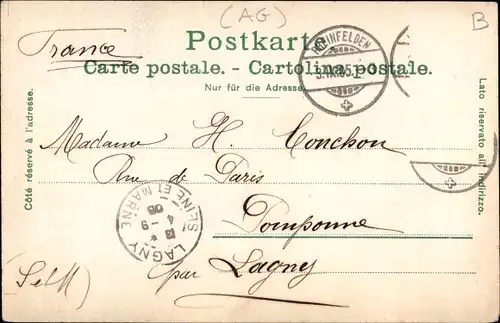 (AG)
B
France
Postkarte
Carte postale. - Cartolina postale.
Nur für die Adresse
Côté réservé à l'adresse.
Lato riservato all' indirizzo.
RHEINFELDEN
Madame H. Conchon
Rue de Paris
Pomponne
par Lagny
(S et M)
LAGNY
SEINE ET MARNE
4 - 9
05